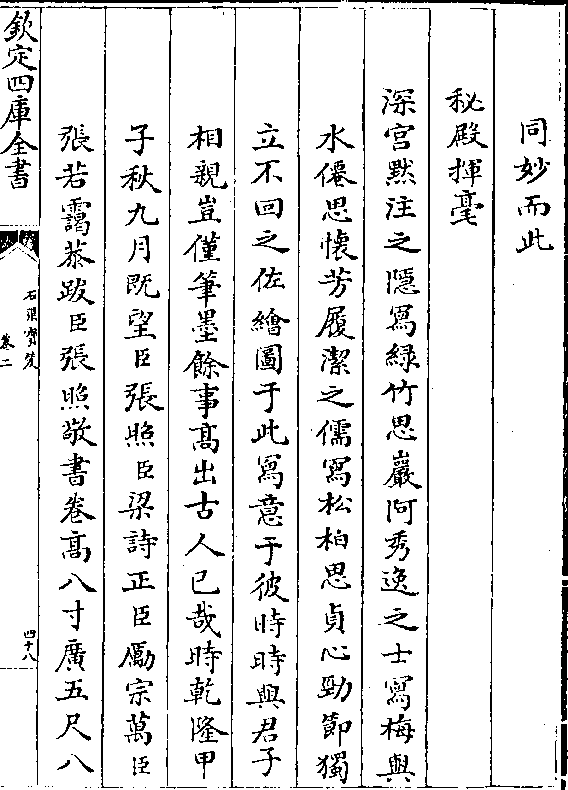 同妙而此
秘殿揮毫
深宫黙注之隱寫緑竹思巖阿秀逸之士寫梅與
水僊思懷芳履潔之儒寫松柏思貞心勁節獨
立不回之佐繪圖于此寫意于彼時時與君子
相親豈僅筆墨餘事髙出古人已哉時乾隆甲
子秋九月既望臣張照臣梁詩正臣勵宗萬臣
張若靄恭跋臣張照敬書卷髙八寸廣五尺八
欽定四庫全書
石渠寳笈
卷二
四十八